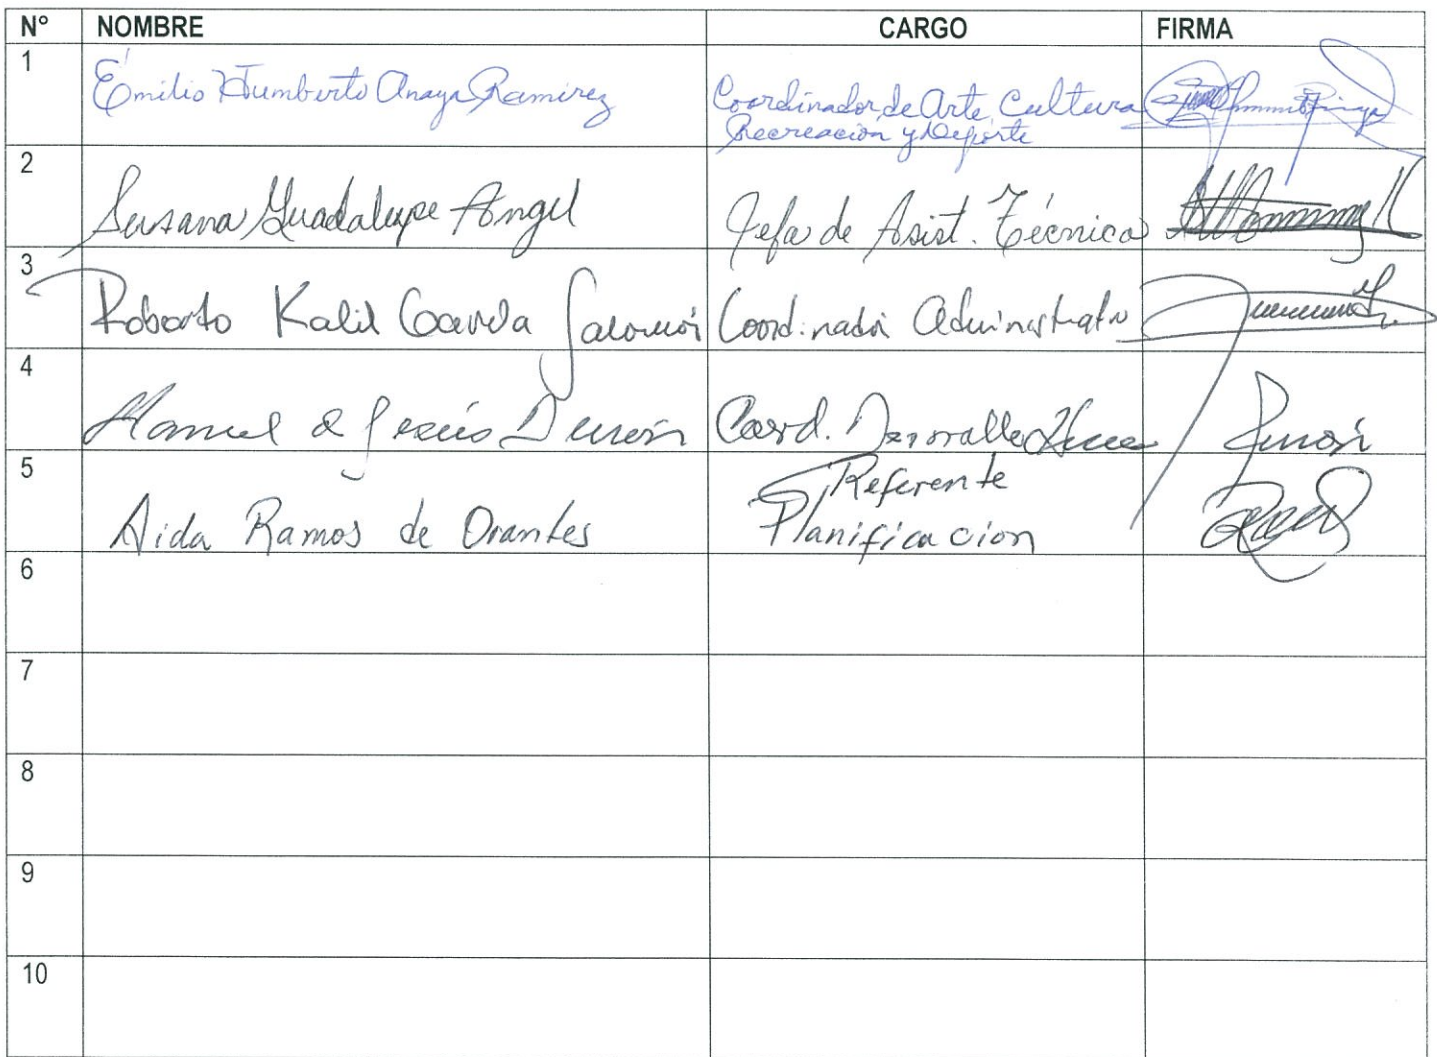 N° NOMBRE CARGO FIRMA
1 Emilio Humberto Anaya Ramirez Coordinador de Arte, Cultura
Recreación y Deporte
2 Susana Guadalupe Angel Jefa de Asist. Técnica
3 Roberto Kalil García Salomón Coordinador Administrativo
4 Manuel de Jesús Durón Coord. Desarrollo Durón
5 Aida Ramos de Orantes Referente
Planificacion
6
7
8
9
10